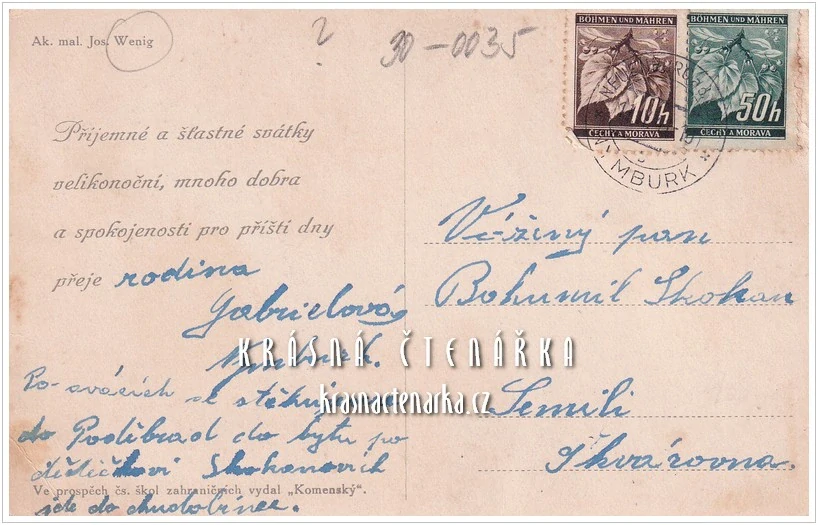 Ak. mal. Jos. Wenig
?
30-0035
BÖHMEN UND MÄHREN
10h
ČECHY A MORAVA
BÖHMEN UND MÄHREN
50h
ČECHY A MORAVA
MBURK
Příjemné a šťastné svátky
velikonoční, mnoho dobra
a spokojenosti pro příští dny
přeje rodina
Gabrielová
Po svátcích se stěhujeme
do Poděbrad do bytu po
dědečkovi Skokanovích
jde do chudobince.
Vážený pan
Bohumil Skokan
Semili
Škvárovna.
KRÁSNÁ ČTENÁŘKA
krasnactenarka.cz
Ve prospěch čs. škol zahraničních vydal „Komenský“.